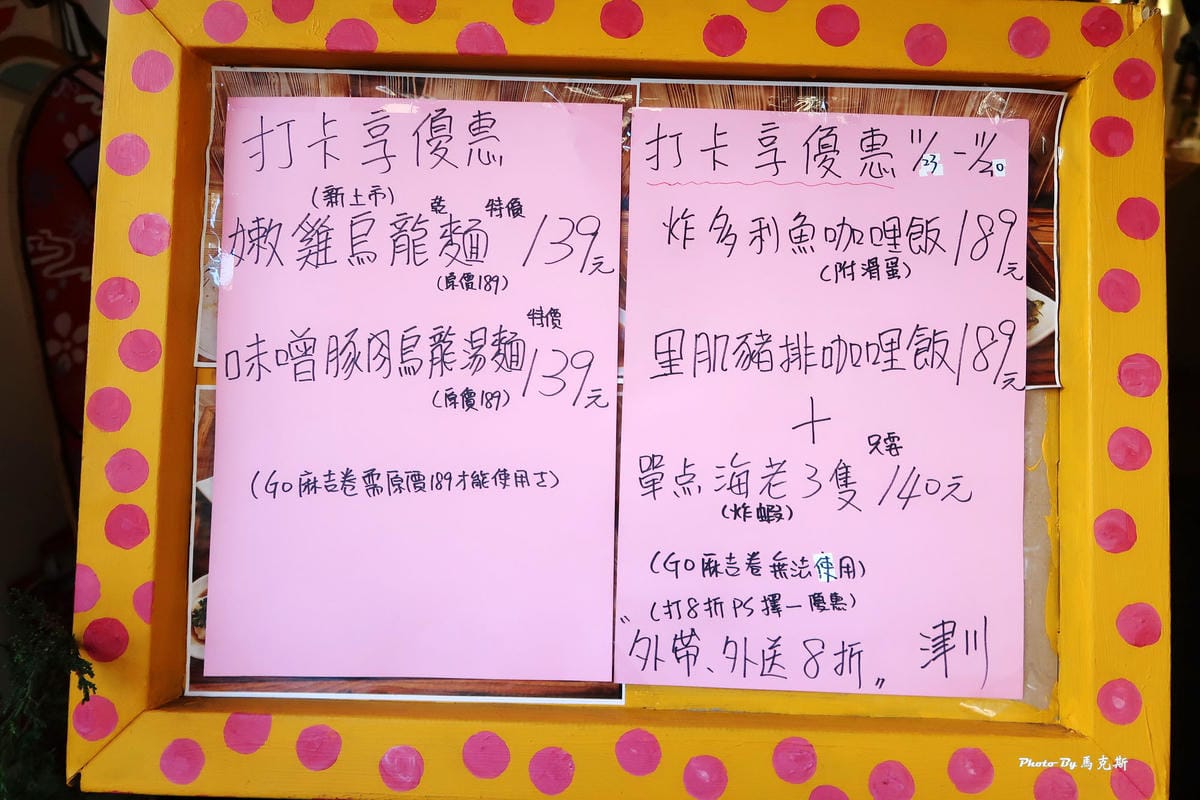 打卡享優惠
(新上市)
嫩雞烏龍乾麵 特價 139元
(原價189)
味噌豚肉烏龍湯麵 特價 139元
(原價189)
(GO麻吉卷需原價189才能使用)
打卡享優惠 11/23 - 11/20
炸多利魚咖哩飯 189元
(附滑蛋)
里肌豬排咖哩飯 189元
+
單点海老3隻 只要 140元
(炸蝦)
(GO麻吉卷無法使用)
(打8折PS擇一優惠)
"外帶、外送8折" 津川
Photo By 馬克斯